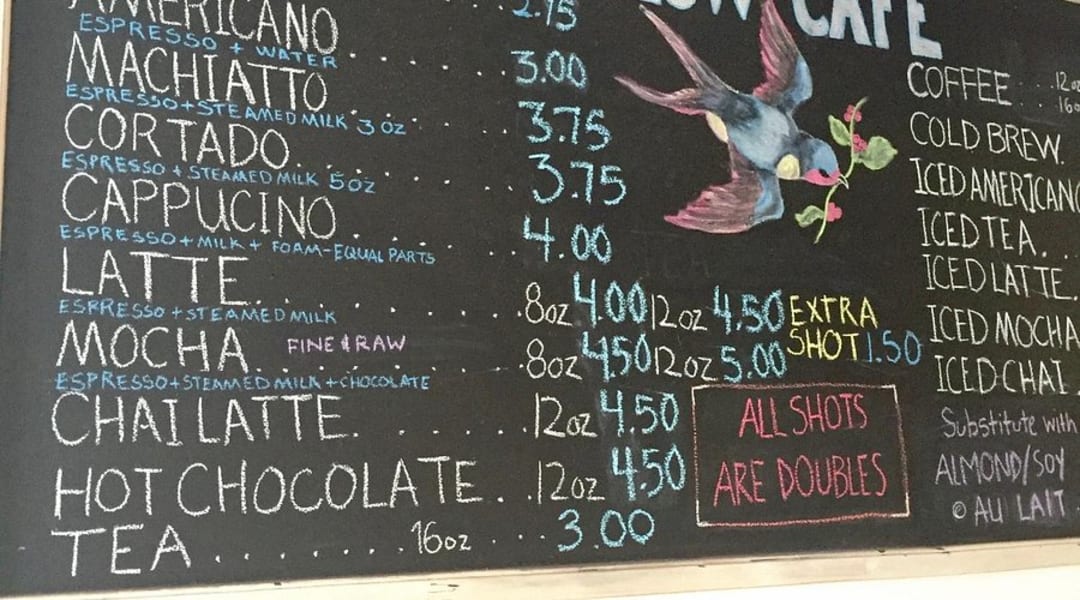 2.75
CAFE
AMERICANO 3.00
ESPRESSO + WATER
MACHIATTO 3.75
ESPRESSO+STEAMED MILK 3 oz
CORTADO 3.75
ESPRESSO + STEAMED MILK 5oz
CAPPUCINO 4.00
ESPRESSO + MILK + FOAM-EQUAL PARTS
LATTE 8oz 4.00 12oz 4.50
ESPRESSO + STEAMED MILK
MOCHA FINE & RAW 8oz 4.50 12oz 5.00
ESPRESSO+STEAMED MILK + CHOCOLATE
CHAI LATTE 12oz 4.50
HOT CHOCOLATE 12oz 4.50
TEA 16oz 3.00
EXTRA
SHOT 1.50
ALL SHOTS
ARE DOUBLES
COFFEE
COLD BREW
ICED AMERICANO
ICED TEA
ICED LATTE
ICED MOCHA
ICED CHAI
Substitute with
ALMOND/SOY
AU LAIT